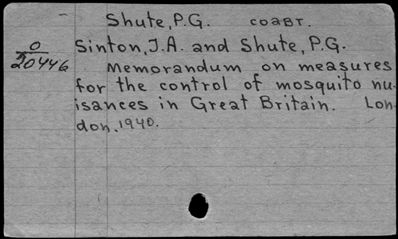 Shute, P.G. соавт.
О
20446
Sinton, J.A. and Shute, P.G.
Memorandum on measures
for the control of mosquito nu-
isances in Great Britain. Lon-
don, 1940.